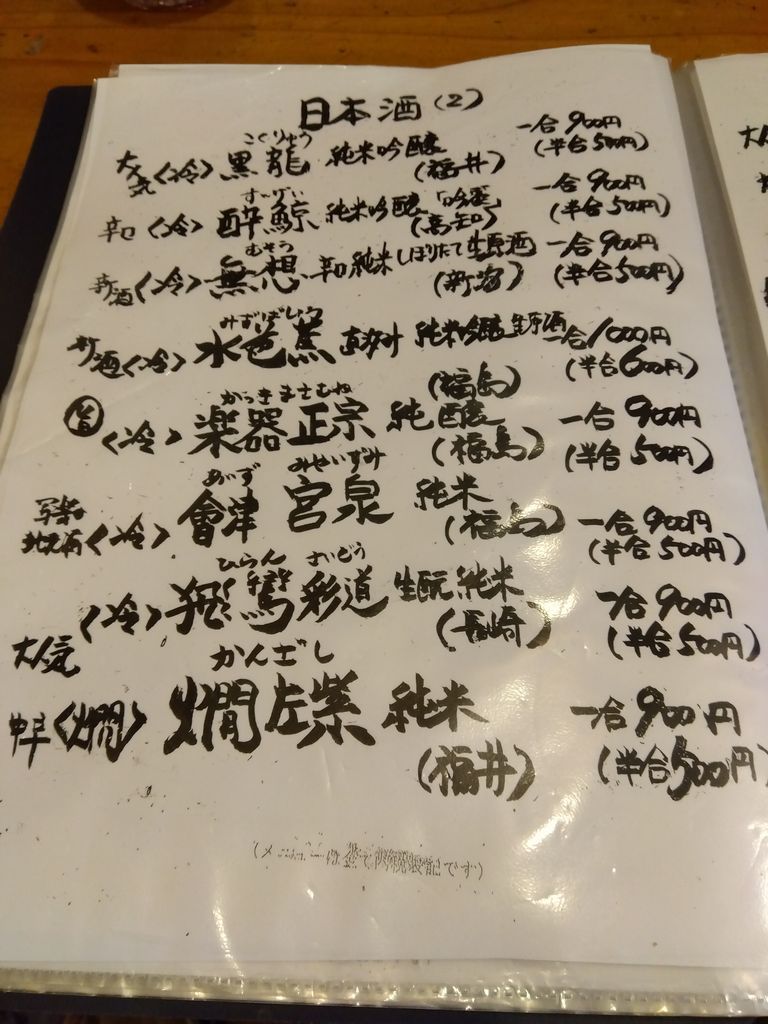 日本酒(2)
こくりゅう
大人気〈冷〉黒龍 純米吟醸 一合900円
(福井) (半合500円)
すいげい
辛口〈冷〉酔鯨 純米吟醸「吟麗」 一合900円
(高知) (半合500円)
むそう
新酒〈冷〉無想 辛口純米しぼりたて生原酒 一合900円
(新潟) (半合500円)
みずばしょう
新酒〈冷〉水芭蕉 直汲み 純米吟醸生原酒 一合1000円
(福島) (半合600円)
がっきまさむね
〈冷〉楽器正宗 純醸 一合900円
(福島) (半合500円)
あいず みやいずみ
写楽
地元酒〈冷〉會津 宮泉 純米 一合900円
(福島) (半合500円)
ひらん さいどう
〈冷〉飛鸞 彩道 生酛純米 一合900円
(長崎) (半合500円)
大人気 かんざし
中辛〈燗〉燗左紫 純米 一合900円
(福井) (半合500円)
(メニューは全て内税表記です)